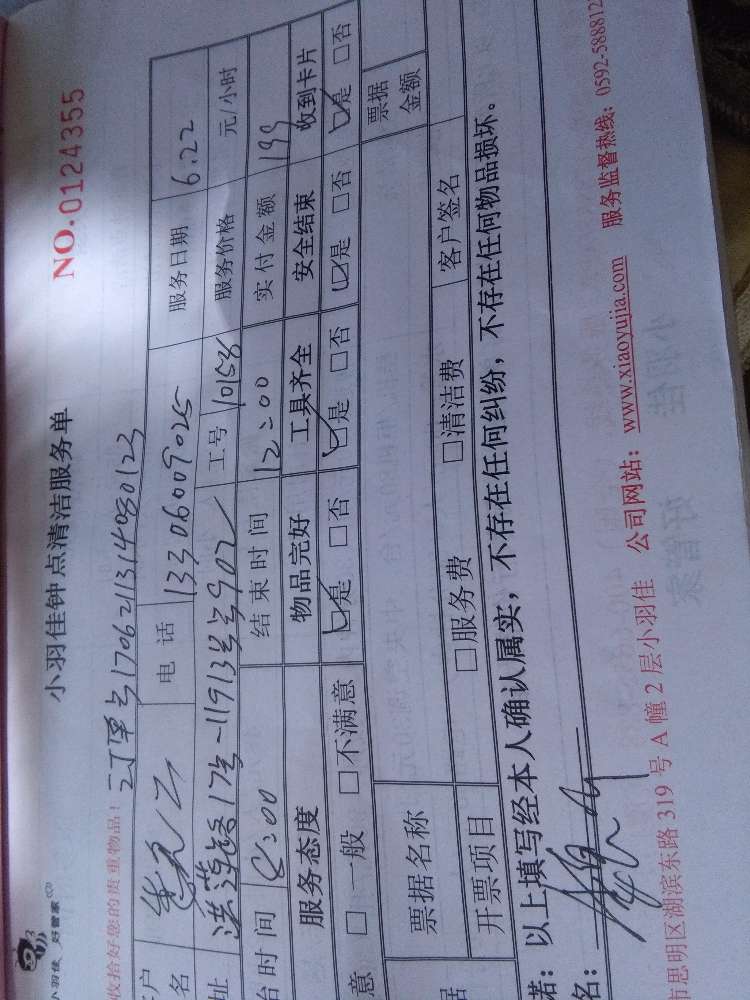 小羽佳钟点清洁服务单
NO.0124355
小羽佳 好管家
收拾好您的贵重物品! 订单号1706211314080123
户名 电话 13306009025 服务日期 6.22
址 洪莲路17号 工号 10158 服务价格 元/小时
台时间 8:00 结束时间 12:00 实付金额 199
服务态度 物品完好 工具齐全 安全结束 收到卡片
意 □一般 □不满意 ☑是 □否 ☑是 □否 ☑是 □否 ☑是 □否
据 票据名称 票据金额
开票项目 □服务费 □清洁费 客户签名
诺:以上填写经本人确认属实,不存在任何纠纷,不存在任何物品损坏。
名:
市思明区湖滨东路319号A幢2层小羽佳 公司网站:www.xiaoyujia.com 服务监督热线:0592-588812